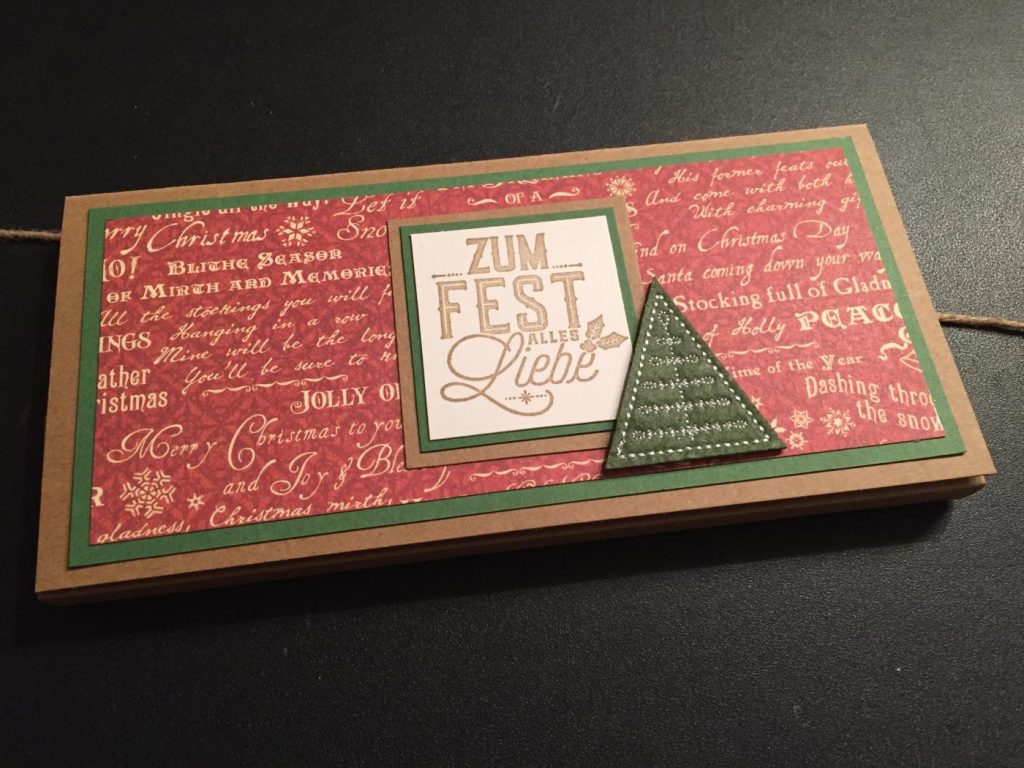 Jingle all the way!
Let it
Snow
OF A
erry Christmas
HO!
BLITHE SEASON
OF MIRTH AND MEMORIE
All the stockings you will f
INGS
Hanging in a row
Mine will be the long
ather
You'll be sure to
ristmas
JOLLY OL
Merry Christmas to you
and Joy & Ble
Christmas mirth
gladness,
ZUM
FEST
ALLES
Liebe
His former feats ou
And come with both h
With charming
ind on Christmas Day
Santa coming down your wa
Stocking full of Gladn
of Holly
PEACE
ime of the Year
Dashing throu
the snow